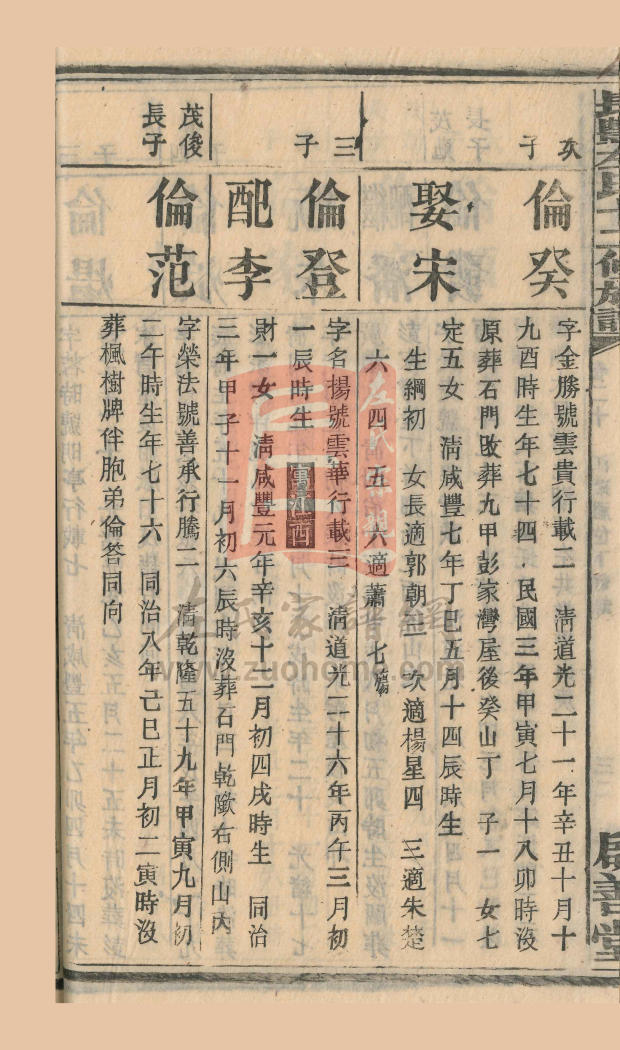 次子
倫癸
字金勝號雲貴行載二 清道光二十一年辛丑十月十
九酉時生年七十四 民國三年甲寅七月十八卯時沒
原葬石門改葬九甲彭家灣屋後癸山丁 子一 女七
娶宋
定五女 清咸豐七年丁巳五月十四辰時生
生綱初 女長適郭朝三 次適楊星四 三適朱楚
六 四 五 六適蕭 七殤
三子
倫登
字名楊號雲華行載三 清道光二十六年丙午三月初
一辰時生 寓江西
配李
財一女 清咸豐元年辛亥十二月初四戌時生 同治
三年甲子十一月初六辰時沒葬石門乾歇右側山丙
茂俊長子
倫范
字榮法號善承行騰二 清乾隆五十九年甲寅九月初
二午時生年七十六 同治八年己巳正月初二寅時沒
葬楓樹牌伴胞弟倫答同向
善堂
左氏家譜網
www.zuohome.com